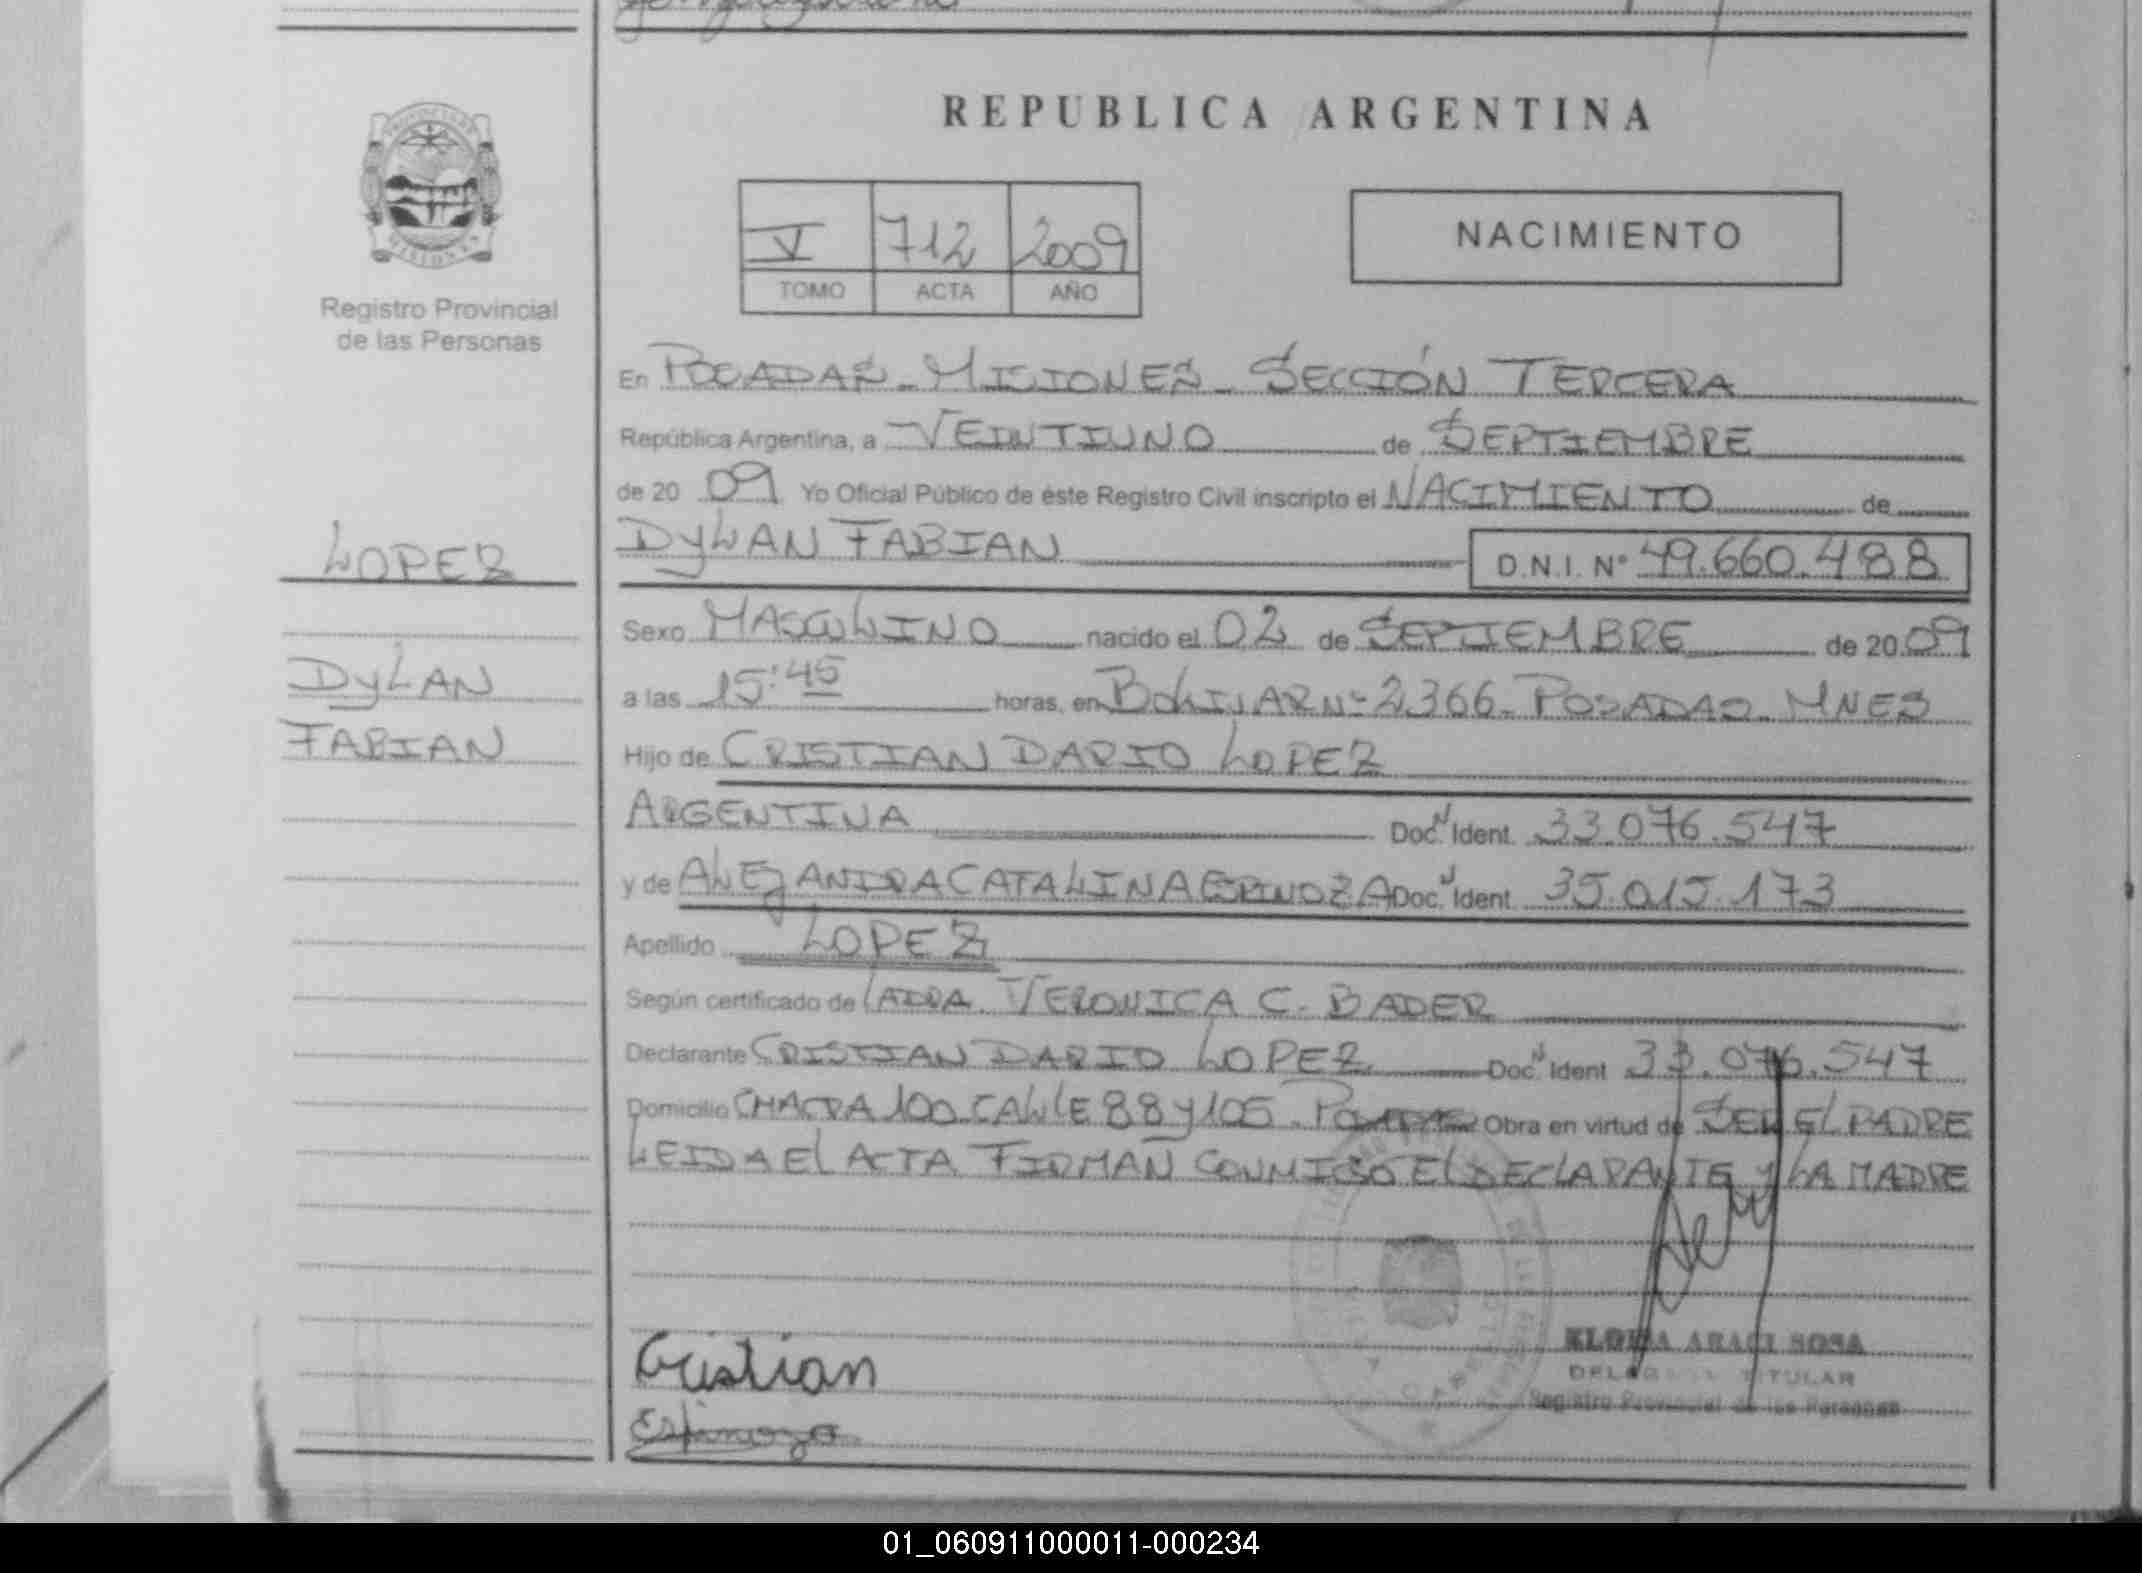 REPUBLICA ARGENTINA
V 712 2009
TOMO ACTA AÑO
NACIMIENTO
Registro Provincial
de las Personas
En POSADAS - MISIONES - SECCIÓN TERCERA
República Argentina, a VEINTIUNO de SEPTIEMBRE
de 20 09 Yo Oficial Público de éste Registro Civil inscripto el NACIMIENTO de
LOPEZ
DYLAN FABIAN D.N.I. Nº 49.660.488
Sexo MASCULINO nacido el 02 de SEPTIEMBRE de 20 09
DYLAN
a las 15:45 horas, en BOLIVAR Nº 2366 - POSADAS - MNES
FABIAN
Hijo de CRISTIAN DARIO LOPEZ
ARGENTINA Doc. Ident. 33.076.547
y de ALEJANDRA CATALINA ESPINOZA Doc. Ident. 35.015.173
Apellido LOPEZ
Según certificado de VERONICA C. BADER
Declarante CRISTIAN DARIO LOPEZ Doc. Ident 33.076.547
Domicilio CHACRA 100 CALLE 88 y 105 - POSADAS Obra en virtud de SER EL PADRE
LEIDA EL ACTA FIRMAN CONMIGO EL DECLARANTE y LA MADRE
Cristian
Espinoza
ARACI SOSA
TITULAR
Registro Provincial de las Personas
01_060911000011-000234